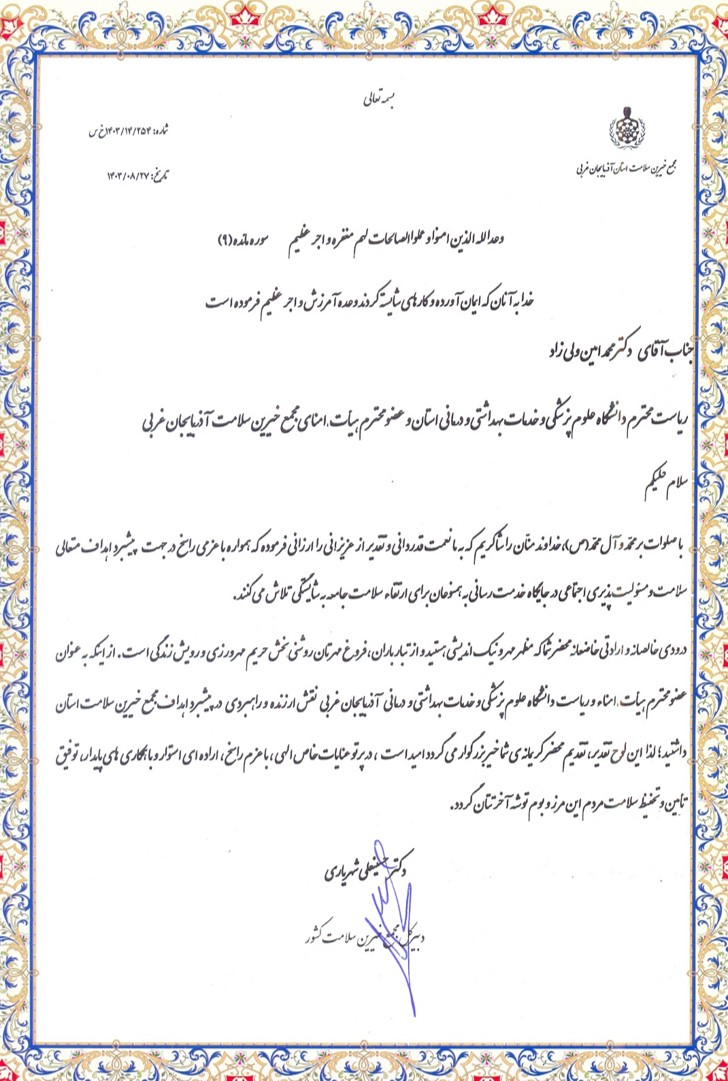 بسمه تعالی
شماره: ۱۴۰۳/۱۴/۲۵۴/خ س
تاریخ: ۱۴۰۳/۰۸/۲۷
مجمع خیرین سلامت استان آذربایجان غربی
وعد الله الذین امنوا و عملوا الصالحات لهم مغفره و اجر عظیم سوره مائده (۹)
خدا به آنان که ایمان آورده و کارهای شایسته کردند وعده آمرزش و اجر عظیم فرموده است
جناب آقای دکتر محمد امین ولی زاد
ریاست محترم دانشگاه علوم پزشکی و خدمات بهداشتی و درمانی استان و عضو محترم هیأت امنای مجمع خیرین سلامت آذربایجان غربی
سلام علیکم
با صلوات بر محمد و آل محمد (ص)، خداوند منّان را شاکریم که به ما نعمت قدردانی و تقدیر از عزیزانی را ارزانی فرموده که همواره با عزمی راسخ در جهت پیشبرد اهداف متعالی
سلامت و مسئولیت پذیری اجتماعی در جایگاه خدمت رسانی به همنوعان برای ارتقاء سلامت جامعه به شایستگی تلاش می کنند.
درودی خالصانه و ارادتی خاضعانه محضر شما که مظهر مهر و نیک اندیشی هستید و از تبار باران، فروغ مهرتان روشنی بخش حریم مهرورزی و رویش زندگی است. از اینکه به عنوان
عضو محترم هیأت امناء و ریاست دانشگاه علوم پزشکی و خدمات بهداشتی و درمانی آذربایجان غربی نقش ارزنده و راهبردی در پیشبرد اهداف مجمع خیرین سلامت استان
داشتید؛ لذا این لوح تقدیر، تقدیم محضر کریمانه ی شما خیر بزرگوار می گردد امید است، در پرتو عنایات خاص الهی، با عزم راسخ، اراده ای استوار و با همکاری های پایدار، توفیق
تأمین و تحفیظ سلامت مردم این مرز و بوم توشه آخرتتان گردد.
دکتر حسینعلی شهریاری
دبیرکل مجمع خیرین سلامت کشور